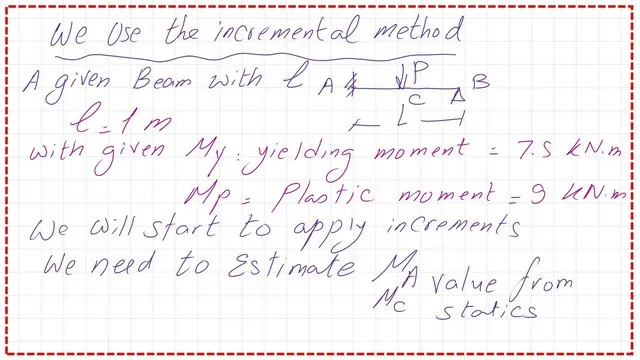 We Use the incremental method
A given Beam with l A P B
C
l = 1 m L
with given My: yielding moment = 7.5 kN.m
Mp = Plastic moment = 9 kN.m
We will start to apply increments
We need to Estimate MA value from
Mc statics